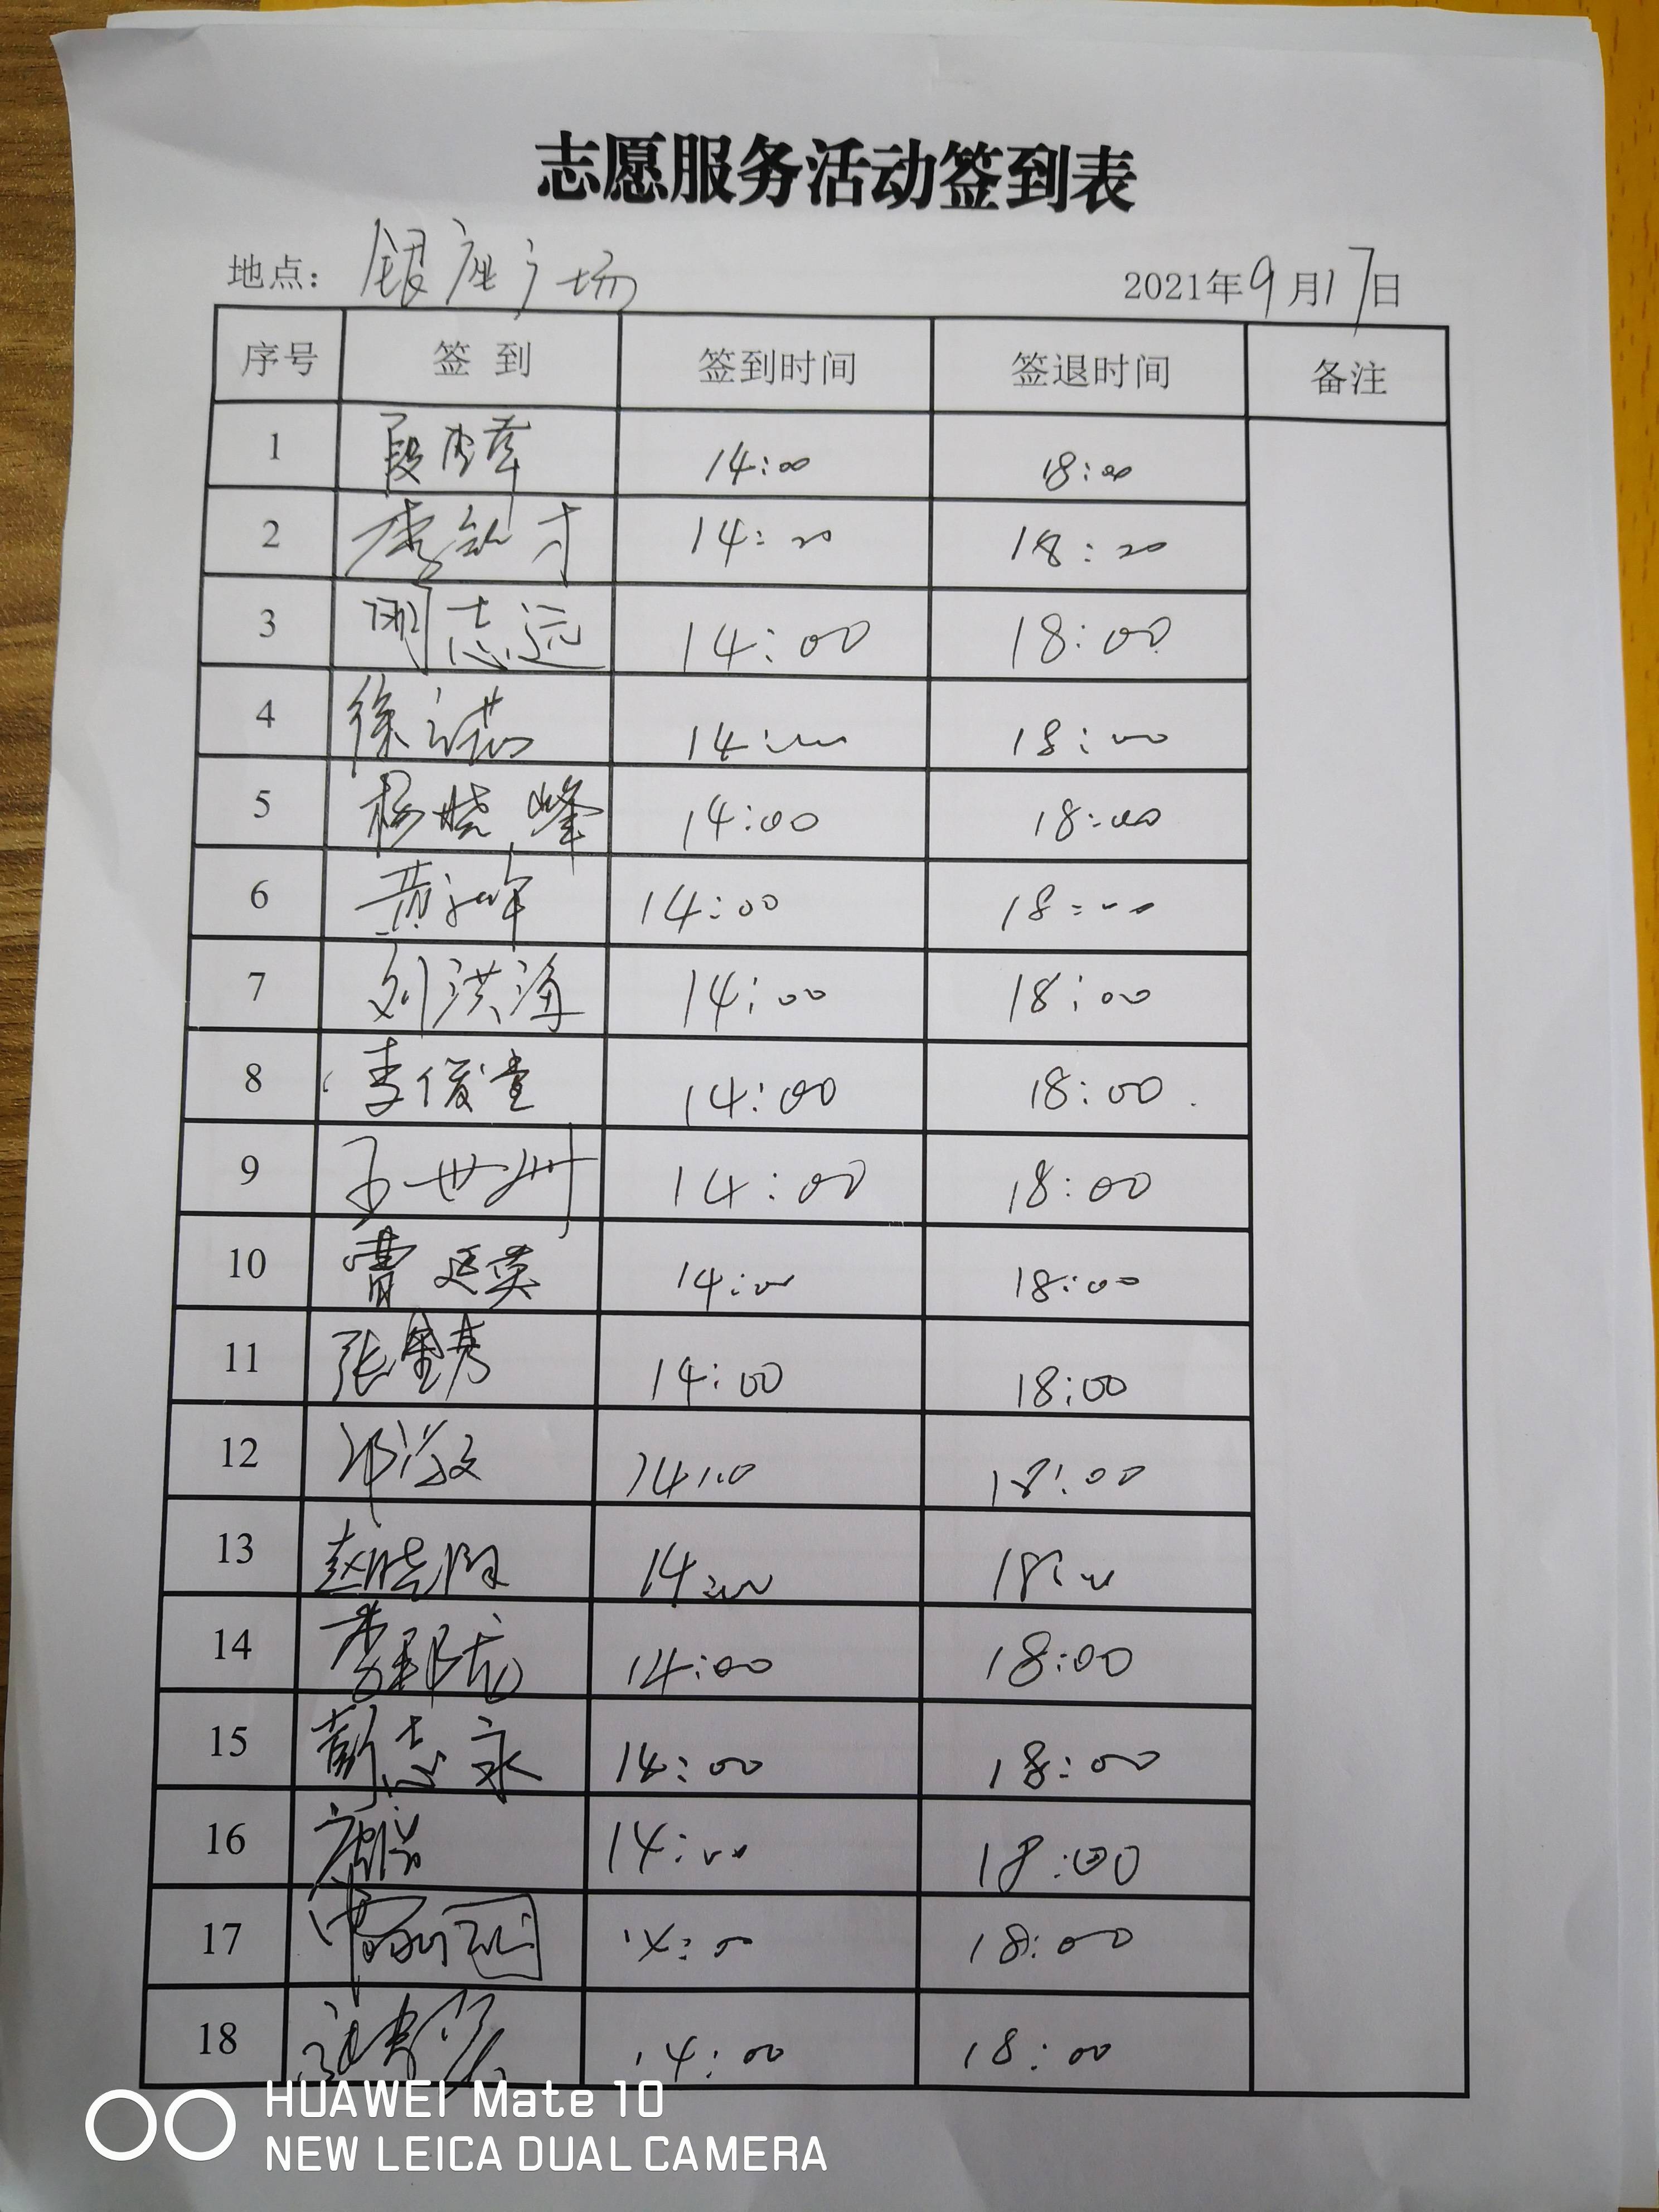 志愿服务活动签到表
地点: 银座广场 2021年9月17日
序号 签到 签到时间 签退时间 备注
1 段 14:00 18:00
2 李 才 14:20 18:20
3 周志远 14:00 18:00
4 徐 14:00 18:00
5 杨晓峰 14:00 18:00
6 黄 14:00 18:00
7 刘洪海 14:00 18:00
8 李俊堂 14:00 18:00
9 王世州 14:00 18:00
10 曹延英 14:00 18:00
11 张金秀 14:00 18:00
12 邓 文 14:00 18:00
13 赵晓 14:00 18:00
14 李 龙 14:00 18:00
15 彭志永 14:00 18:00
16 14:00 18:00
17 曹 14:00 18:00
18 14:00 18:00
HUAWEI Mate 10
NEW LEICA DUAL CAMERA